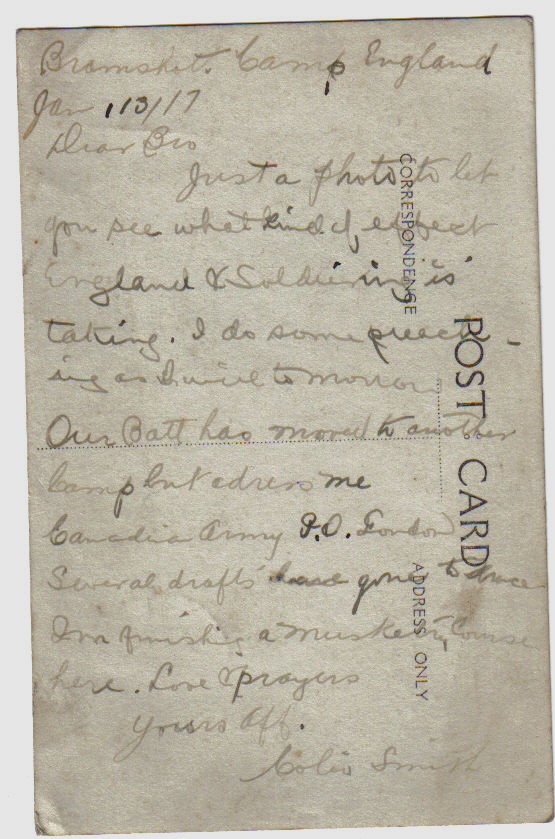 Bramshot. Camp England
Jan 13/17
Dear Bro
Just a photo to let
you see what kind of effect
England & Soldiering is
taking. I do some preach-
ing as I will to morrow
Our Batt has moved to another
Camp but adress me
Canadian Army P.O. London
Several drafts have gone to
I'm finishing a musketry Course
here. Love & prayers
Yours Aff.
Colin Smith
CORRESPONDENCE
POST CARD
ADDRESS ONLY